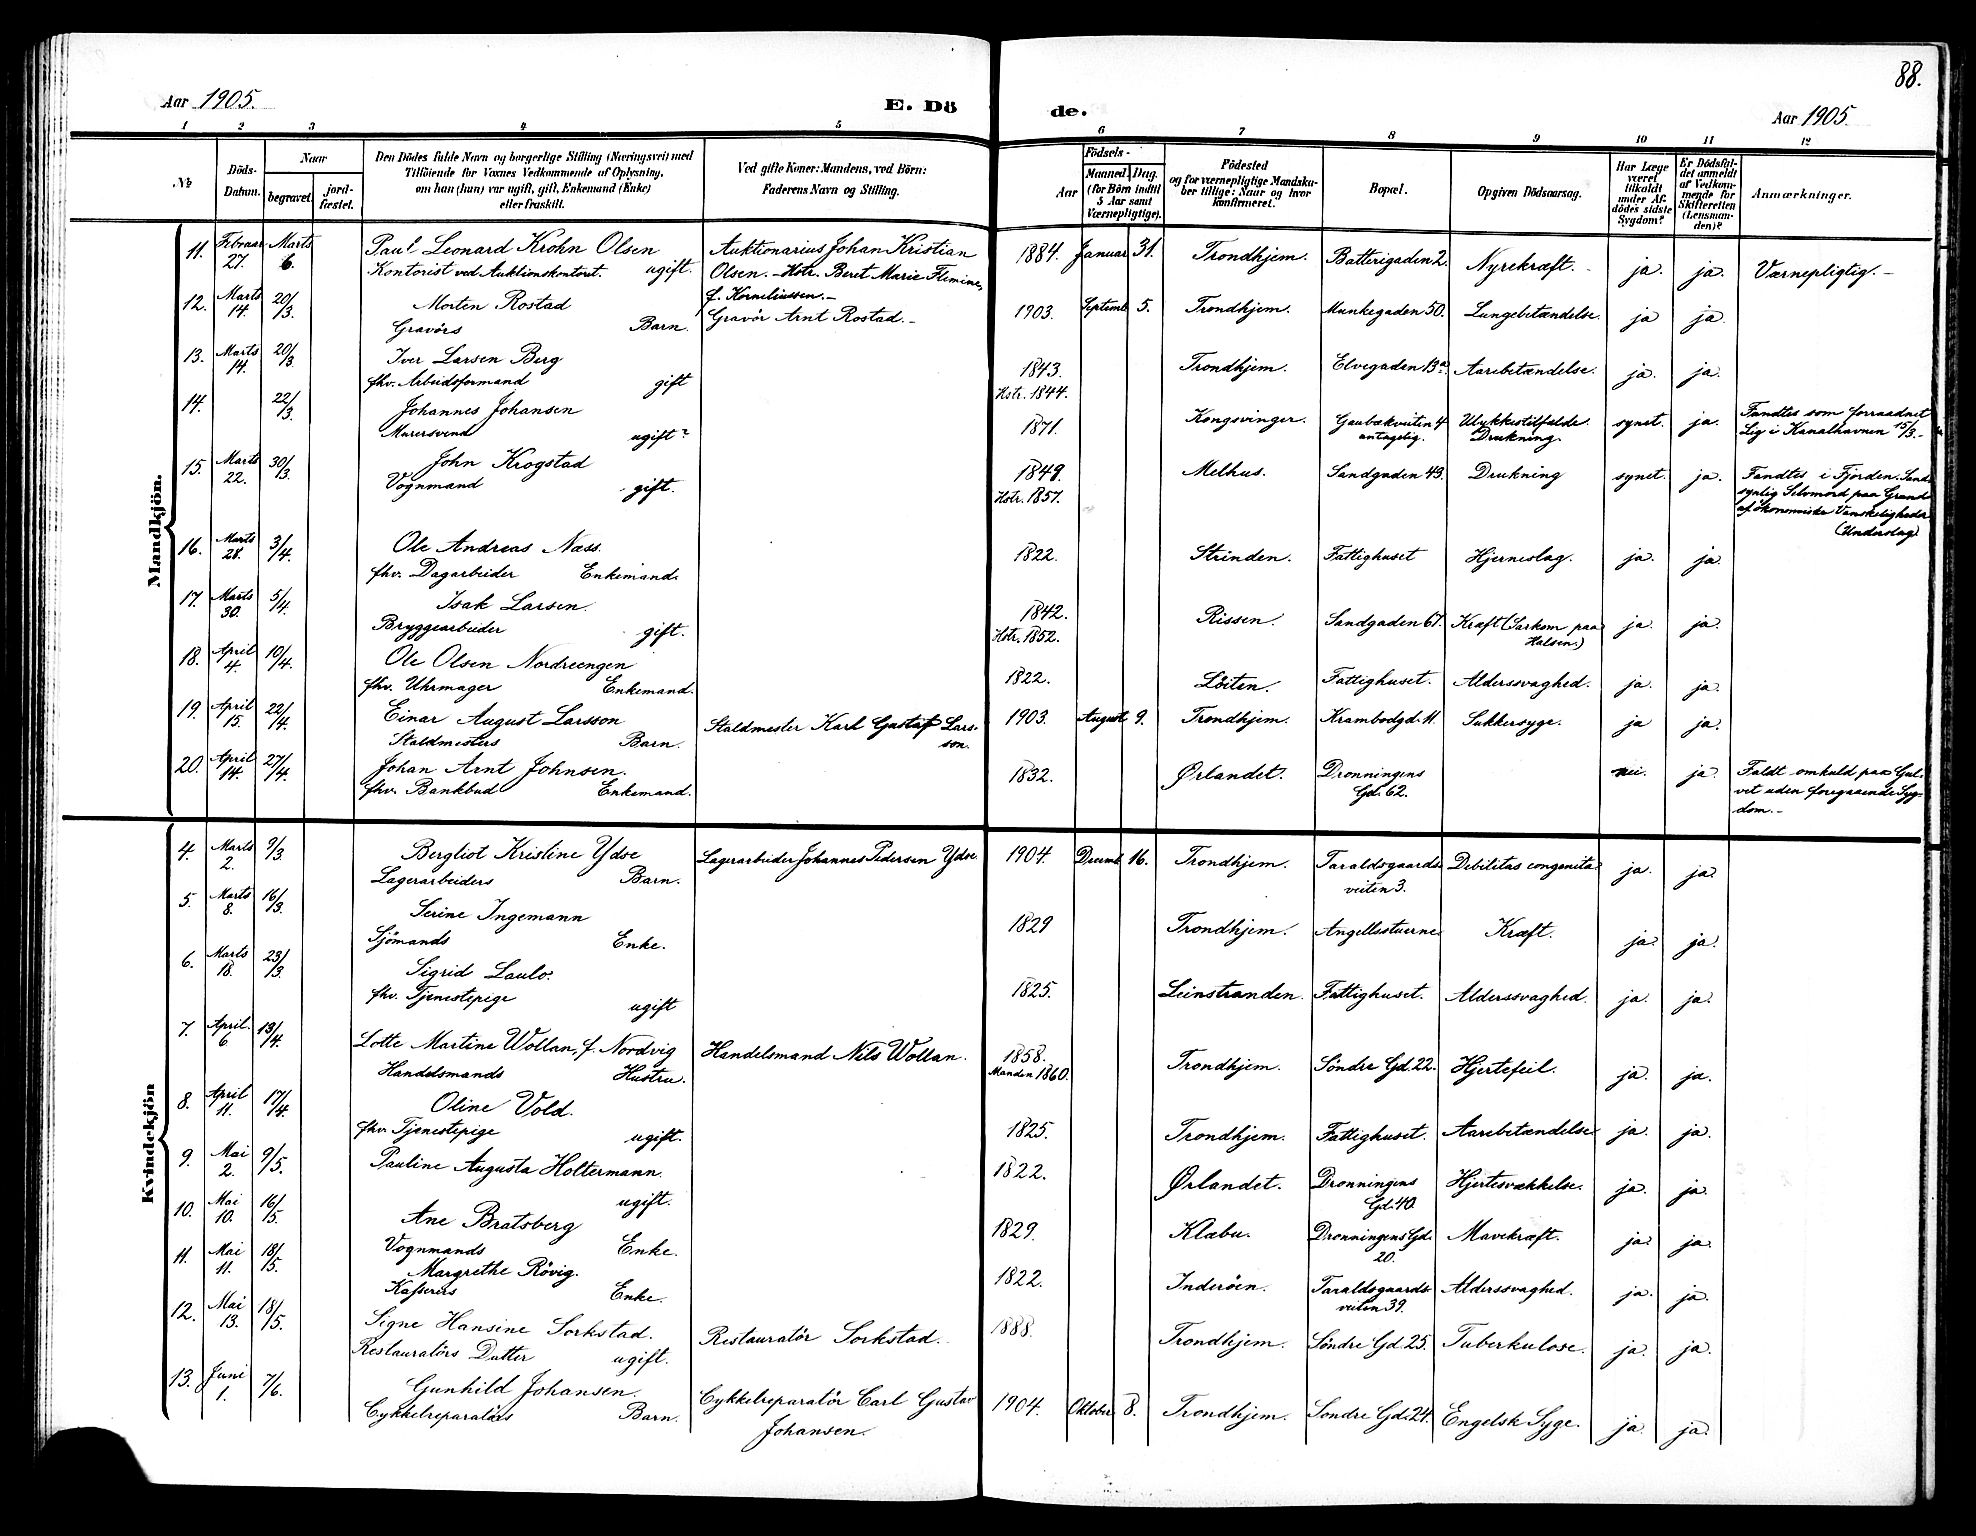 88.
Aar 1905.
E. Dö
de.
Aar 1905.
1 2 3 4 5 6 7 8 9 10 11 12
№
Döds-
Datum.
Naar
begravet.
jord-
fæstet.
Den Dödes fulde Navn og borgerlige Stilling (Næringsvei) med
Tilföiende for Voxnes Vedkommende af Oplysning,
om han (hun) var ugift, gift, Enkemand (Enke)
eller fraskilt.
Ved gifte Koner: Mandens, ved Börn:
Faderens Navn og Stilling.
Födsels-
Aar
Maaned. Dag.
(for Börn indtil
5 Aar samt
Værnepligtige).
Födested
og for værnepligtige Mandsku-
ber tillige: Naar og hvor
konfirmeret.
Bopæl.
Opgiven Dödsaarsag.
Har Læge
været
tilkaldt
under Af-
dödes sidste
Sygdom?
Er Dödsfal-
det anmeldt
af Vedkom-
mende for
Skifteretten
(Lensman-
den)?
Anmærkninger.
Mandkjön.
11. Februar 27. Marts 6. Paul Leonard Krohn Olsen
Kontorist ved Auktionskontoret. ugift.
Auktionarius Johan Kristian
Olsen. - Hstr. Beret Marie Flemine,
f. Korneliussen. -
1884. Januar 31. Trondhjem. Batterigaden 2. Nyrekræft. - ja. ja. Værnepligtig. -
12. Marts 14. 20/3. Morten Rostad
Gravörs Barn.
Gravör Arnt Rostad. -
1903. Septemb. 5. Trondhjem. Munkegaden 50. Lungebetændelse. ja ja.
13. Marts 14. 20/3. Iver Larsen Berg
fhv. Arbeidsformand gift
1843.
Hstr. 1844.
Trondhjem. Elvegaden 13a. Aarebetændelse. ja. ja.
14. 22/3. Johannes Johansen
Murersvend ugift?
1871. Kongsvinger. Gaubækveiten 4
antagelig.
Ulykkestilfælde.
Drukning.
synet. ja.
Fandtes som forraadnet
Lig i Kanalhavnen 15/3. -
15. Marts 22. 30/3. John Krogstad
Vognmand gift.
1849.
Hstr. 1857.
Melhus. Sandgaden 43. Drukning synet. ja.
Fandtes i Fjorden. Sand-
synlig Selvmord paa Grund
af ökonomiske Vanskeligheder
(Underslag)
16. Marts 28. 3/4. Ole Andreas Næss.
fhv. Dagarbeider Enkemand.
1822. Strinden. Fattighuset Hjerneslag. ja. ja.
17. Marts 30. 5/4. Isak Larsen.
Bryggearbeider gift.
1842.
Hstr. 1852.
Rissen. Sandgaden 67. Kræft (Sarkom paa
Halsen.)
ja. ja.
18. April 4. 10/4. Ole Olsen Nordreengen
fhv. Uhrmager Enkemand.
1822. Löiten. Fattighuset. Alderssvaghed. ja. ja.
19. April 15. 22/4. Einar August Larsson
Staldmesters Barn.
Staldmester Karl Gustaf Lars-
son.
1903. August 9. Trondhjem. Krambodgd. 11. Sukkersyge. ja ja.
20. April 14. 27/4. Johan Arnt Johnsen.
fhv. Bankbud Enkemand.
1832. Ørlandet. Dronningens
Gd. 62.
nei. ja.
Faldt omkuld paa Gul-
vet uden foregaaende Syg-
dom. -
Kvindekjön
4. Marts 2. 9/3. Bergliot Kristine Ydse
Lagerarbeiders Barn.
Lagerarbeider Johannes Pedersen Ydse.
1904. Decemb. 16. Trondhjem. Taraldsgaards-
veiten 3.
Debilitas congenita. ja. ja.
5. Marts 8. 16/3. Serine Ingemann
Sjömands Enke.
1829 Trondhjem. Angellsstuerne. Kræft. ja. ja.
6. Marts 18. 23/3. Sigrid Laulo.
fhv. Tjenestepige ugift
1825. Leinstranden. Fattighuset. Alderssvaghed. ja. ja.
7. April. 6 13/4. Lotte Martine Wollan, f. Nordvig
Handelsmands Hustru.
Handelsmand Nils Wollan.
1858.
Manden 1860.
Trondhjem. Söndre Gd. 22. Hjertefeil. ja. ja.
8. April 11. 17/4. Oline Vold.
fhv. Tjenestepige ugift.
1825. Trondhjem. Fattighuset. Aarebetændelse. ja. ja.
9. Mai 2. 9/5. Pauline Augusta Holtermann.
ugift.
1822. Ørlandet. Dronningens
Gd. 40.
Hjertesvækkelse. ja. ja.
10. Mai 10. 16/5. Ane Bratsberg
Vognmands Enke.
1829. Klæbu. Dronningens Gd.
20.
Mavekræft. ja. ja.
11. Mai 11. 18/5. Margrethe Rövig.
Kasserers Enke.
1822. Inderöen. Taraldsgaards-
veiten 39.
Alderssvaghed. ja. ja.
12. Mai 13. 18/5. Signe Hansine Sorkstad.
Restauratörs Datter ugift.
Restauratör Sorkstad.
1888. Trondhjem. Söndre Gd. 25. Tuberkulose. ja. ja.
13. Juni 1. 7/6. Gunhild Johansen.
Cykkelreparatörs Barn.
Cykkelreparatör Carl Gustav
Johansen.
1904. Oktober 8. Trondhjem. Söndre Gd. 24. Engelsk Syge. ja. ja.